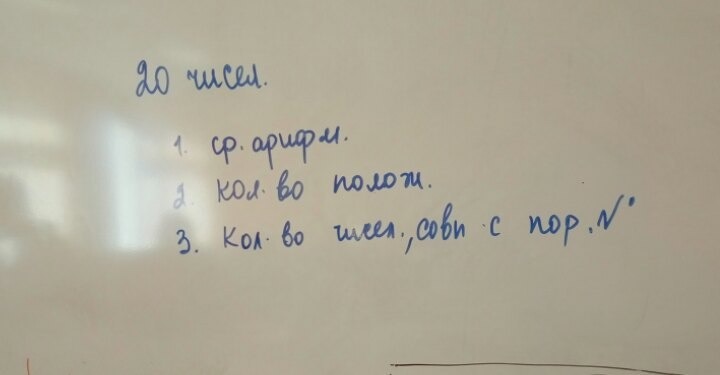 20 чисел.
1. ср. арифм.
2. кол. во полож.
3. кол. во чисел., совп. с пор. №